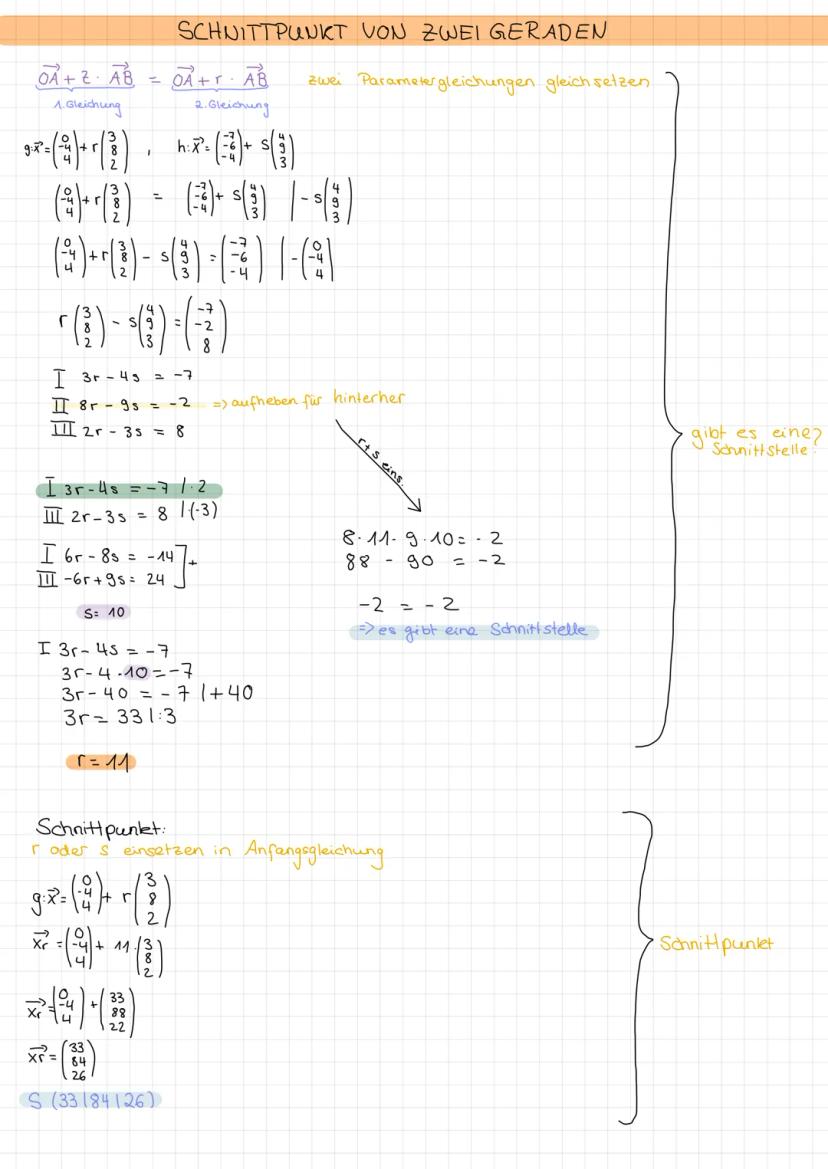 SCHNITTPUNKT VON ZWEI GERADEN
OA + z · AB = OA + r · AB zwei Parametergleichungen gleichsetzen
1. Gleichung 2. Gleichung
g:x = (0 -4 4) + r (3 8 2) , h:x = (-7 -6 -4) + s (4 9 3)
(0 -4 4) + r (3 8 2) = (-7 -6 -4) + s (4 9 3) | - s (4 9 3)
(0 -4 4) + r (3 8 2) - s (4 9 3) = (-7 -6 -4) | - (0 -4 4)
r (3 8 2) - s (4 9 3) = (-7 -2 8)
I 3r - 4s = -7
II 8r - 9s = -2 => aufheben für hinterher
III 2r - 3s = 8
r + s eins.
gibt es eine?
Schnittstelle.
I 3r - 4s = -7 / · 2
III 2r - 3s = 8 / (-3)
I 6r - 8s = -14 ] +
III -6r + 9s = 24
s = 10
8 · 11 - 9 · 10 = - 2
88 - 90 = -2
-2 = - 2
=> es gibt eine Schnittstelle
I 3r - 4s = -7
3r - 4 · 10 = -7
3r - 40 = - 7 | + 40
3r = 33 | : 3
r = 11
Schnittpunkt:
r oder s einsetzen in Anfangsgleichung
g:x = (0 -4 4) + r (3 8 2)
xr = (0 -4 4) + 11 · (3 8 2)
xr = (0 -4 4) + (33 88 22)
xr = (33 84 26)
S (33 | 84 | 26)
Schnittpunkt